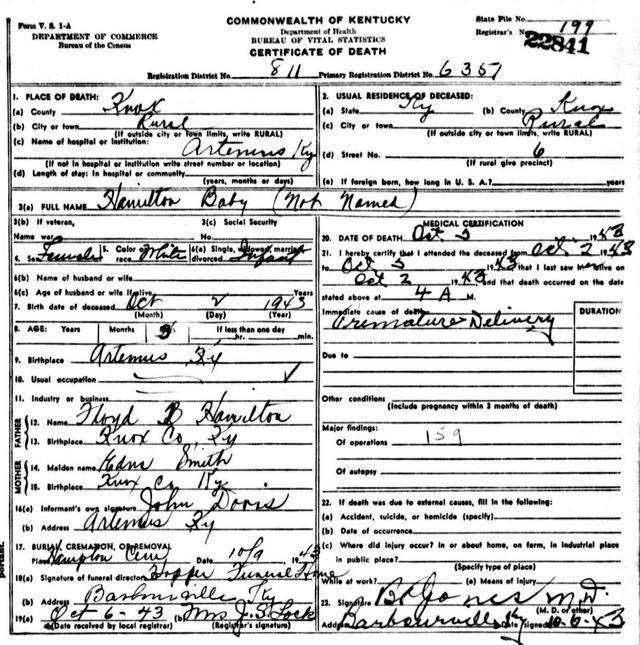 Form V. S. 1-A
DEPARTMENT OF COMMERCE
Bureau of the Census
COMMONWEALTH OF KENTUCKY
Department of Health
BUREAU OF VITAL STATISTICS
CERTIFICATE OF DEATH
State File No.
Registrar's No. 199
22841
Registration District No. 811 Primary Registration District No. 6357
1. PLACE OF DEATH:
(a) County Knox
(b) City or town Rural
(If outside city or town limits, write RURAL)
(c) Name of hospital or institution: Artemus Ky
(If not in hospital or institution write street number or location)
(d) Length of stay: In hospital or community
(years, months or days)
2. USUAL RESIDENCE OF DECEASED:
(a) State Ky (b) County Knox
(c) City or town Rural
(If outside city or town limits, write RURAL)
(d) Street No. 6
(If rural give precinct)
(e) If foreign born, how long in U. S. A.? years
3(a) FULL NAME Hamilton Baby (Not Named)
3(b) If veteran,
Name war
3(c) Social Security
No.
4. Sex Female 5. Color or race White 6(a) Single, widowed, married, divorced Infant
6(b) Name of husband or wife
6(c) Age of husband or wife if alive Years
7. Birth date of deceased Oct 2 1943
(Month) (Day) (Year)
8. AGE: Years Months Days 3 If less than one day
hr. min.
9. Birthplace Artemus Ky
10. Usual occupation
11. Industry or business
FATHER
12. Name Floyd B Hamilton
13. Birthplace Knox Co Ky
MOTHER
14. Maiden name Edna Smith
15. Birthplace Knox Co Ky
16(a) Informant's own signature John Davis
(b) Address Artemus Ky
17. BURIAL, CREMATION, OR REMOVAL
Hampton Cem Date 10/9 1943
18(a) Signature of funeral director Hopper Funeral Home
(b) Address Barbourville Ky
19(a) Oct 6-43 (b) Mrs J. S. Lock
(Date received by local registrar) (Registrar's signature)
MEDICAL CERTIFICATION
20. DATE OF DEATH Oct 5 1943
21. I hereby certify that I attended the deceased from Oct 2 1943
to Oct 5 1943 that I last saw alive on
Oct 2 1943 and that death occurred on the date
stated above at 4 A M.
Immediate cause of death
Premature Delivery
DURATION
Due to
Other conditions
(Include pregnancy within 3 months of death)
Major findings:
Of operations 159
Of autopsy
22. If death was due to external causes, fill in the following:
(a) Accident, suicide, or homicide (specify)
(b) Date of occurrence
(c) Where did injury occur? in or about home, on farm, in industrial place
in public place?
(Specify type of place)
While at work? (e) Means of injury
23. Signature B Jones M.D.
(M. D. or other)
Address Barbourville Ky Date signed 10-6-43
portant.